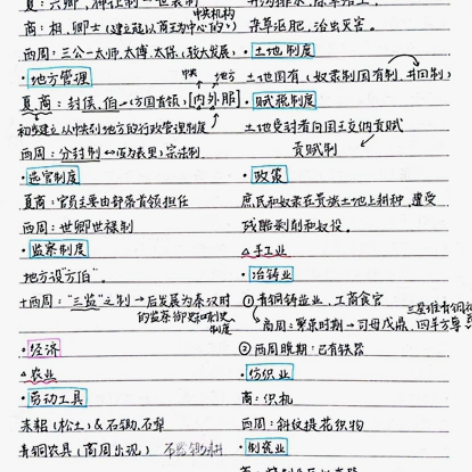 夏：六卿，神权制 — 世袭制
中央机构
商：相，卿士（建立起以商王为中心的）
西周：三公—太师、太傅、太保（较大发展）
·地方管理
中央 地方
夏、商：封侯、伯→（方国首领）[内外服]
初步建立从中央到地方的行政管理制度
西周：分封制↔（互为表里）宗法制
·选官制度
夏商：官员主要由部落首领担任
西周：世卿世禄制
·监察制度
地方设“方伯”。
十西周：“三监”之制→后发展为秦汉时
的监察御史和刺史
制度
·经济
△农业
·劳动工具
耒耜（松土）&石锄、石犁
青铜农具（商周出现）
杂草沤肥，治虫灾害。
·土地制度
土地国有（奴隶制国有制，井田制）
·赋税制度
土地受封者向国王交纳贡赋
贡赋制
·政策
庶民和奴隶在贵族土地上耕种，遭受
残酷剥削和奴役。
△手工业
·冶铸业
①青铜铸造业，工商食官
三星堆青铜
商周：繁荣时期→司母戊鼎、四羊方尊
②西周晚期：已有铁器
·纺织业
商：织机
西周：斜纹提花织物
·制瓷业